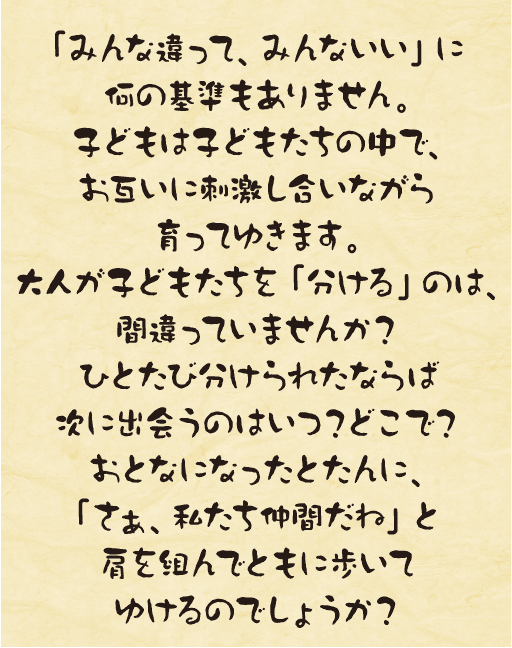 「みんな違って、みんないい」に
何の基準もありません。
子どもは子どもたちの中で、
お互いに刺激し合いながら
育ってゆきます。
大人が子どもたちを「分ける」のは、
間違っていませんか?
ひとたび分けられたならば
次に出会うのはいつ?どこで?
おとなになったとたんに、
「さぁ、私たち仲間だね」と
肩を組んでともに歩いて
ゆけるのでしょうか?